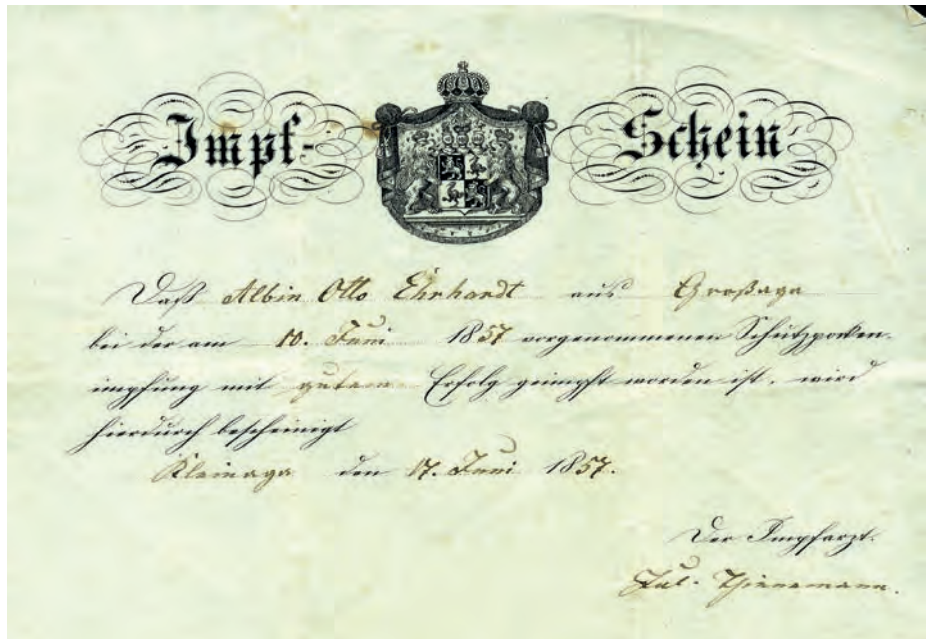 Impf- Schein
Daß Albin Otto Ehrhardt aus Großaga
bei der am 10. Juni 1857 vorgenommenen Schutzpocken-
impfung mit gutem Erfolg geimpft worden ist, wird
hierdurch bescheinigt
Kleinaga den 17. Juni 1857.
Der Impfarzt.
Jul. Thienemann.